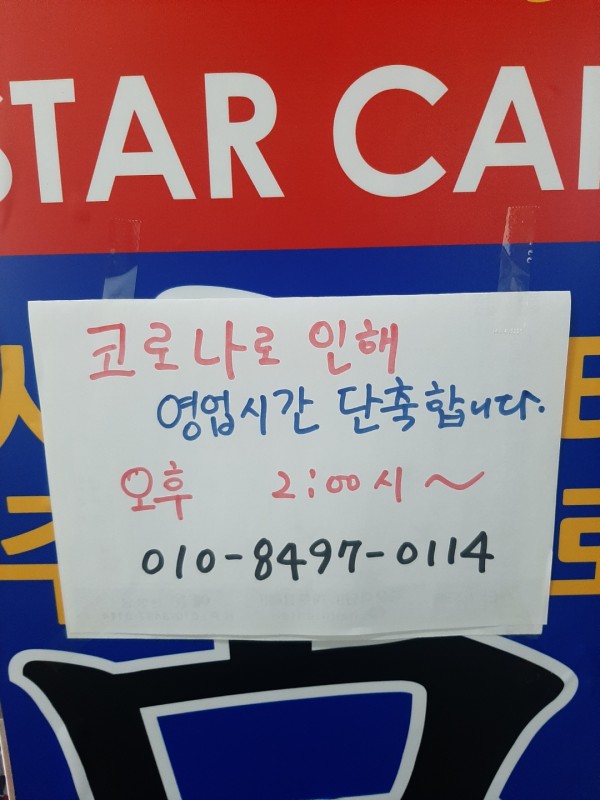 STAR CAR
코로나로 인해
영업시간 단축합니다.
오후 2:00시~
010-8497-0114